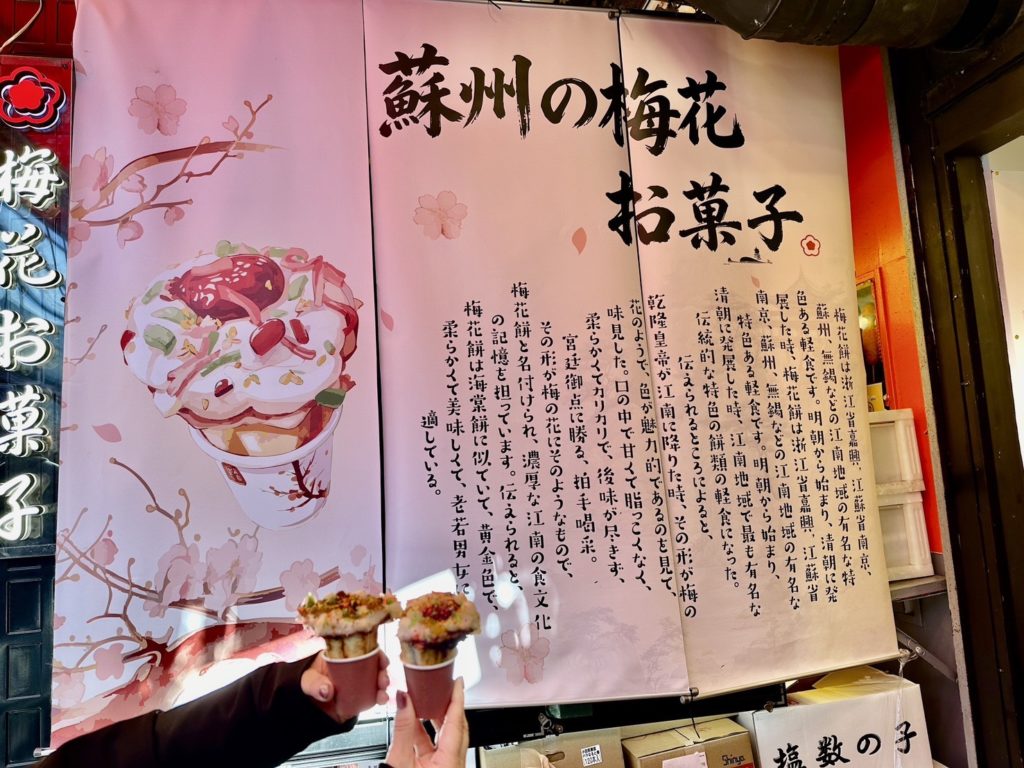 蘇州の梅花
お菓子
梅花餅は浙江省嘉興、江蘇省南京、
蘇州、無錫などの江南地域の有名な特
色ある軽食です。明朝から始まり、清朝に発
展した時、梅花餅は浙江省嘉興、江蘇省
南京、蘇州、無錫などの江南地域の有名な
特色ある軽食です。明朝から始まり、
清朝に発展した時、江南地域で最も有名な
伝統的な特色の餅類の軽食になった。
伝えられるところによると、
乾隆皇帝が江南に降りた時、その形が梅の
花のようで、色が魅力的であるのを見て、
味見した。口の中で甘くて脂っこくなく、
柔らかくてカリカリで、後味が尽きず、
宮廷御点に勝る、拍手喝采。
その形が梅の花にそのようなもので、
梅花餅と名付けられ、濃厚な江南の食文化
の記憶を担っています。伝えられると、
梅花餅は海棠餅に似ていて、黄金色で、
柔らかくて美味しくて、老若男女に
適している。
梅花お菓子
塩数の子
Shinya